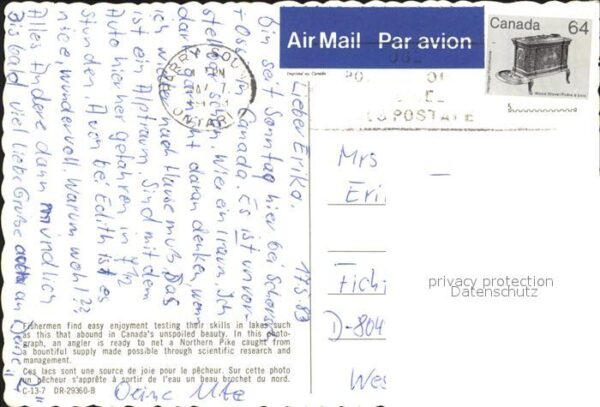 Air Mail Par avion
Canada 64
Imprimé au Canada
PARRY SOUND
ONTARIO
USE
POSTAL CODE
17.5.83
Liebe Erika,
bin seit Sonntag hier bei Schorsch
+ Ossi in Canada. Es ist unvor-
stellbar schön. Wie ein Traum. Ich
darf gar nicht daran denken, wenn
ich wieder nach Hause muß. Das
ist ein Alptraum. Sind mit dem
Auto hierher gefahren in 7 1/2
Stunden. Auch bei Edith ist es
nice, wundervoll. Warum wohl??
Alles andere dann mündlich
Bis bald viel liebe Grüße auch an Deine
Deine Ute
Mrs
Eri
Fichi
D-804
Wes
privacy protection
Datenschutz
Fishermen find easy enjoyment testing their skills in lakes such
as this that abound in Canada's unspoiled beauty. In this photo-
graph, an angler is ready to net a Northern Pike caught from
a bountiful supply made possible through scientific research and
management.
Ces lacs sont une source de joie pour le pêcheur. Sur cette photo
un pêcheur s'apprête à sortir de l'eau un beau brochet du nord.
C-13-7 DR-29360-B